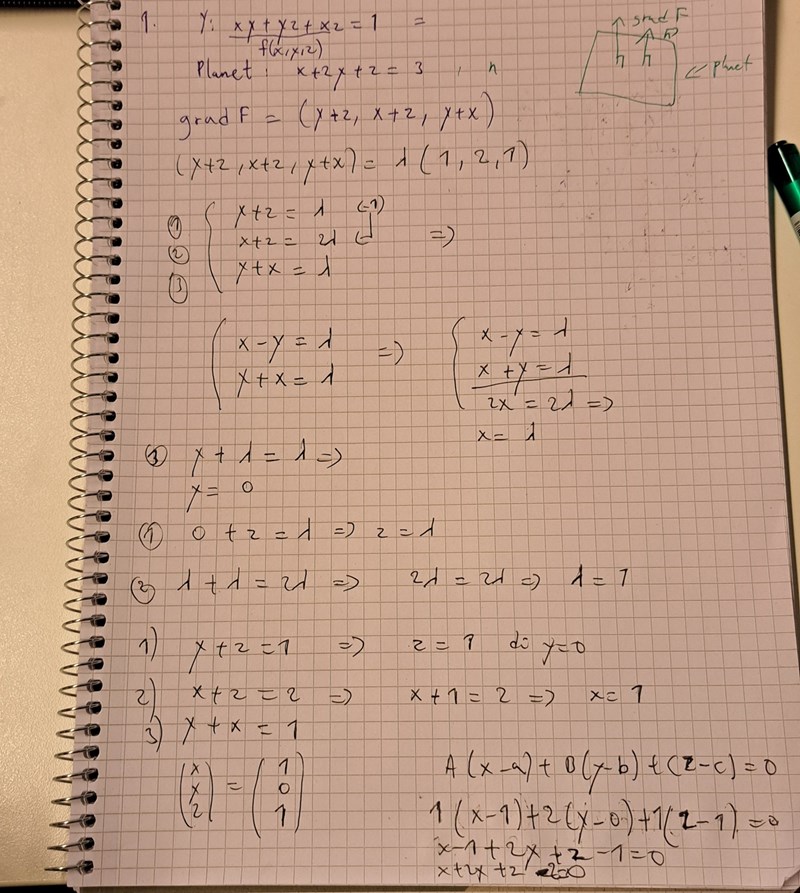 1. Y: xy + yz + xz = 1 =
f(x,y,z)
Planet: x+2y+z = 3 , n
grad F
n n
planet
grad F = (y+z, x+z, y+x)
(y+z, x+z, y+x) = λ (1, 2, 1)
① y+z = λ (-1)
② x+z = 2λ =>
③ y+x = λ
x-y = λ => x-y = λ
y+x = λ x+y = λ
2x = 2λ =>
x = λ
③ y + λ = λ =>
y = 0
① 0 + z = λ => z = λ
② λ + λ = 2λ => 2λ = 2λ => λ = 1
1) y+z = 1 => z = 1 då y=0
2) x+z = 2 => x+1 = 2 => x = 1
3) y+x = 1
(x y z) = (1 0 1)
A(x-a) + B(y-b) + C(z-c) = 0
1(x-1) + 2(y-0) + 1(z-1) = 0
x-1+2y+z-1=0
x+2y+z-2=0